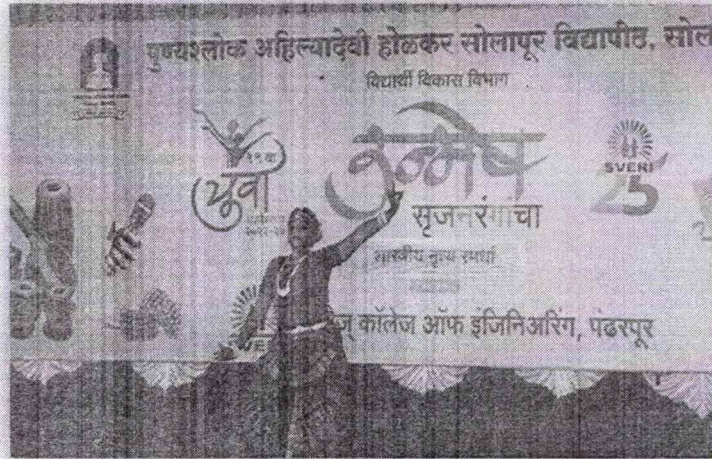 पुण्यश्लोक अहिल्यादेवी होळकर सोलापूर विद्यापीठ, सोल
विद्यार्थी विकास विभाग
युवा
उन्मेष
SVERI
25
सृजनरंगांचा
शास्त्रीय नृत्य स्पर्धा
ज् कॉलेज ऑफ इंजिनिअरिंग, पंढरपूर